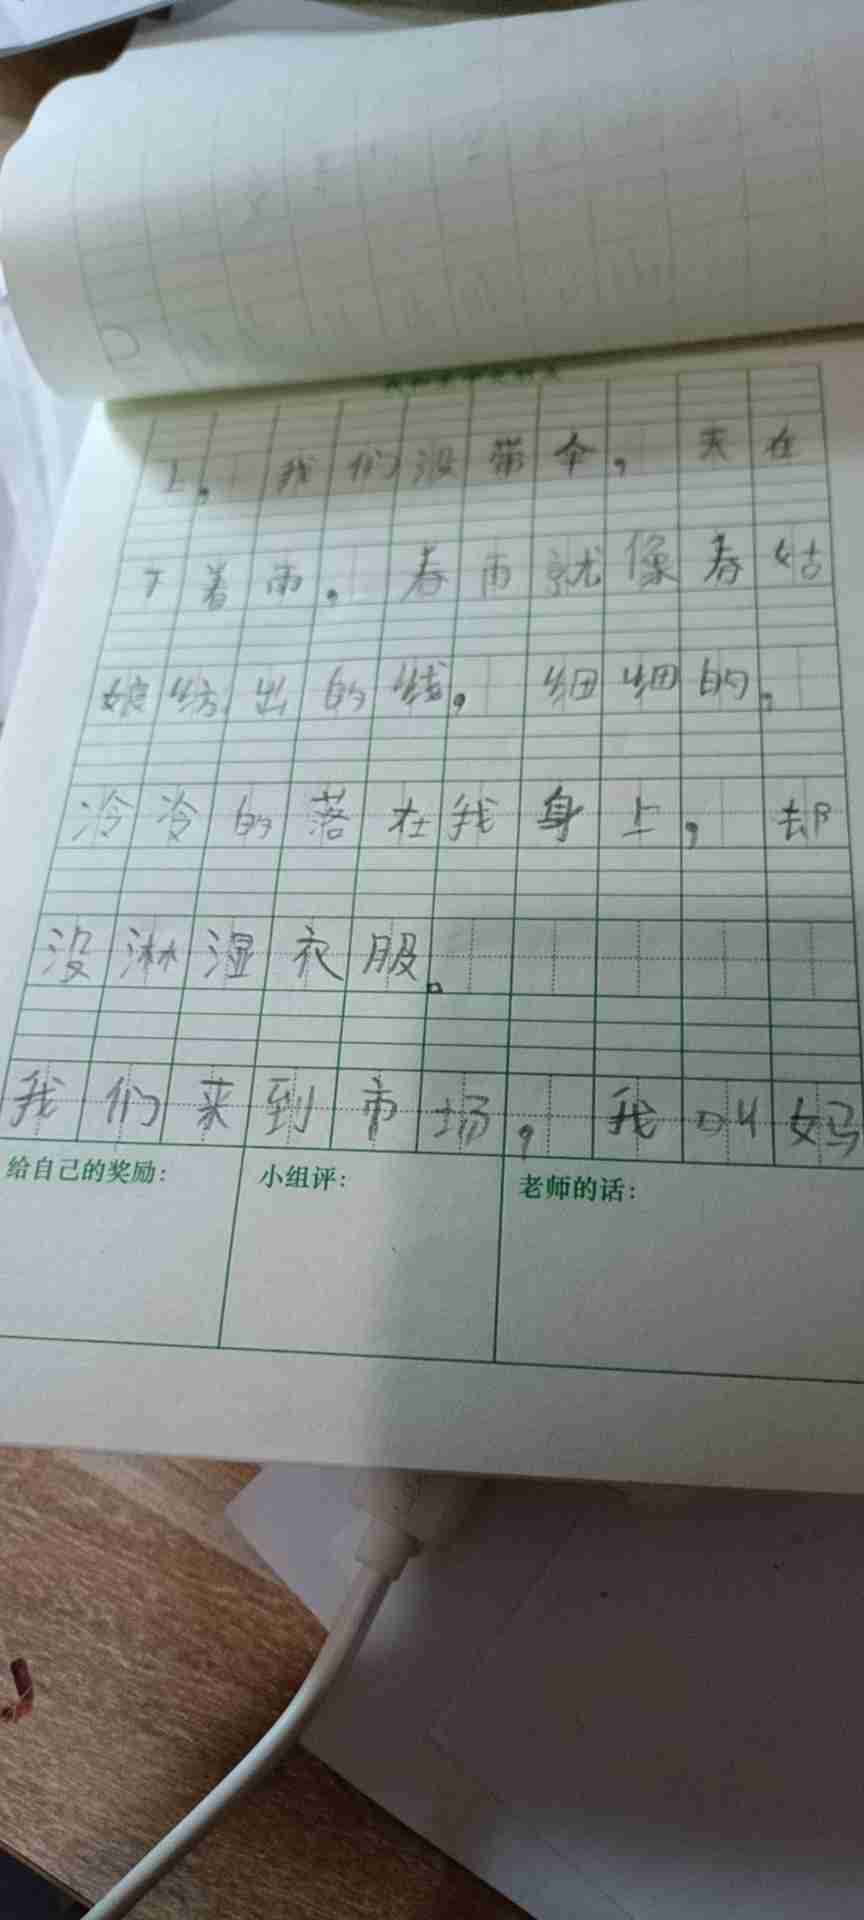 上，我们没带伞，天在
下着雨。春雨就像春姑
娘纺出的线，细细的，
冷冷的落在我身上，却
没淋湿衣服。
我们来到市场，我叫妈
给自己的奖励：
小组评：
老师的话：